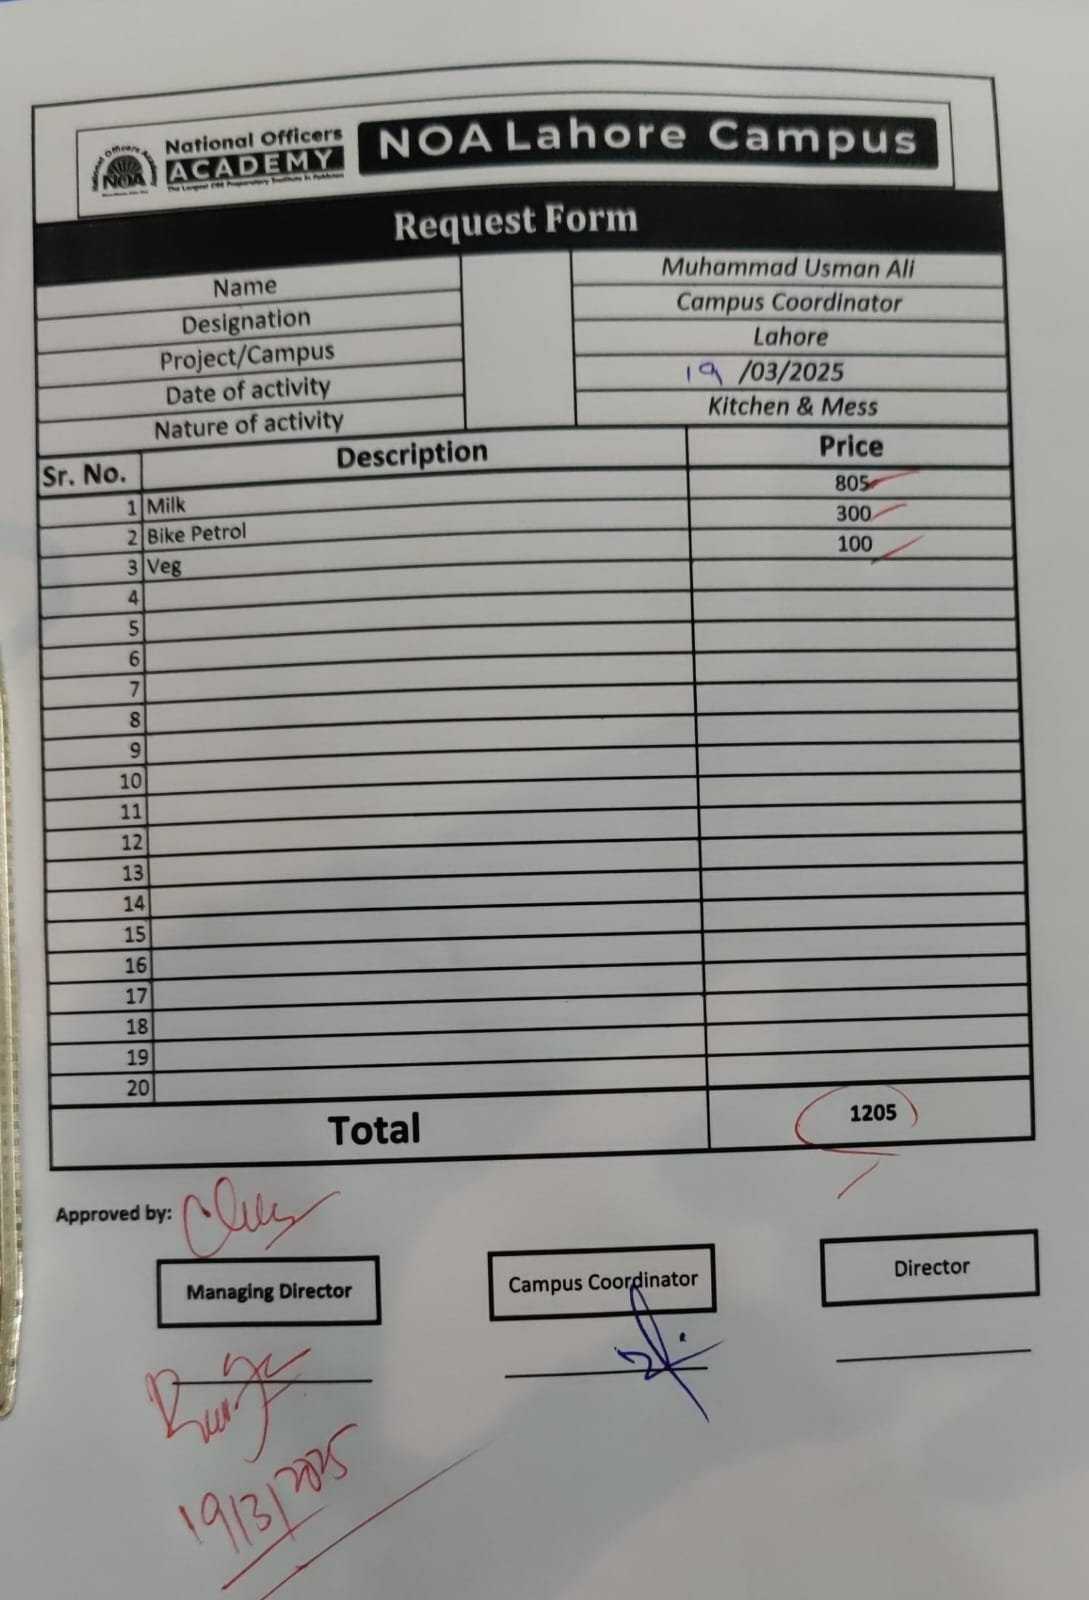 National Officers
ACADEMY
The Largest CSS Preparatory Institute in Pakistan
NOA
NOA Lahore Campus
Request Form
Name Muhammad Usman Ali
Designation Campus Coordinator
Project/Campus Lahore
Date of activity 19 /03/2025
Nature of activity Kitchen & Mess
Sr. No. Description Price
1 Milk 805
2 Bike Petrol 300
3 Veg 100
4
5
6
7
8
9
10
11
12
13
14
15
16
17
18
19
20
Total 1205
Approved by:
Managing Director Campus Coordinator Director
19/3/2025